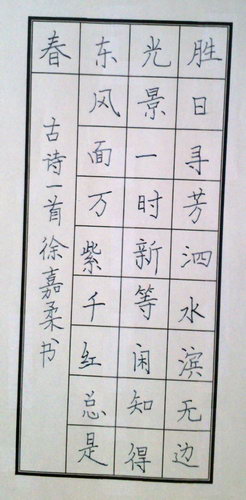 胜日寻芳泗水滨无边
光景一时新等闲知得
东风面万紫千红总是
春
古诗一首徐嘉柔书